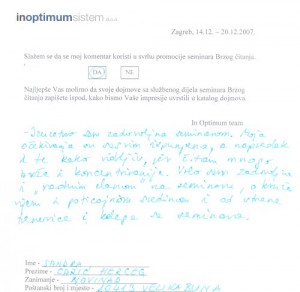 inoptimum sistem d.o.o.
Zagreb, 14.12. – 20.12.2007.
Slažem se da se moj komentar koristi u svrhu promocije seminara Brzog čitanja.
DA NE
Najljepše Vas molimo da svoje dojmove sa službenog dijela seminara Brzog
čitanja zapišete ispod, kako bismo Vaše impresije uvrstili u katalog dojmova.
In Optimum team
- Izuzetno sam zadovoljna seminarom. Moja
očekivanja su sasvim ispunjena, a napredak
i te kako vidljiv, jer čitam mnogo
brže i koncentriranije. Vrlo sam zadovoljna
i radnim elanom na seminaru,
i poticajnom sredinom i od strane
trenerice i kolega sa seminara.
Ime - SANDRA
Prezime - CARIĆ HERCEG
Zanimanje - NOVINAR
Poštanski broj i mjesto - 10413 VELIKA BUNA